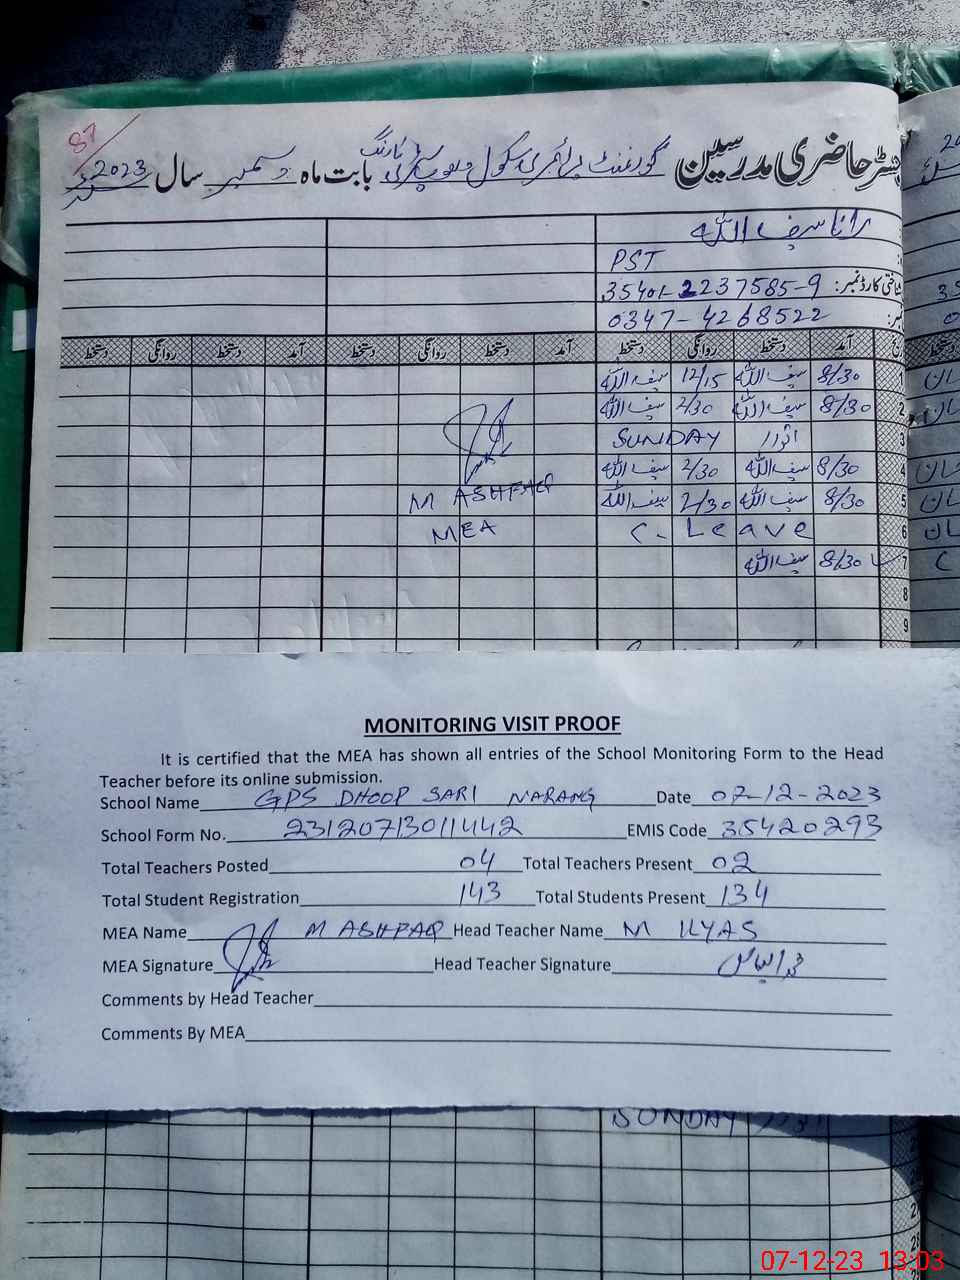 87
رجسٹر حاضری مدرسین گورنمنٹ پرائمری سکول دھوپ سڑی نارنگ بابت ماہ دسمبر سال 2023
رانا سیف اللہ
PST
شناختی کارڈ نمبر: 35401-2237585-9
0347-4268522
آمد دستخط روانگی دستخط آمد دستخط روانگی دستخط آمد دستخط روانگی دستخط
1 8/30 سیف اللہ 12/15 سیف اللہ
2 8/30 سیف اللہ 2/30 سیف اللہ
3 اتوار SUNDAY
4 8/30 سیف اللہ 2/30 سیف اللہ
5 8/30 سیف اللہ 2/30 سیف اللہ M ASHFAQ
6 C. Leave MEA
7 8/30 سیف اللہ
8
9
MONITORING VISIT PROOF
It is certified that the MEA has shown all entries of the School Monitoring Form to the Head
Teacher before its online submission.
School Name GPS DHOOP SARI NARANG Date 07-12-2023
School Form No. 23120713011442 EMIS Code 35420293
Total Teachers Posted 04 Total Teachers Present 02
Total Student Registration 143 Total Students Present 134
MEA Name M ASHFAQ Head Teacher Name M ILYAS
MEA Signature Head Teacher Signature محمد الیاس
Comments by Head Teacher
Comments By MEA
SUNDAY
07-12-23 13:03